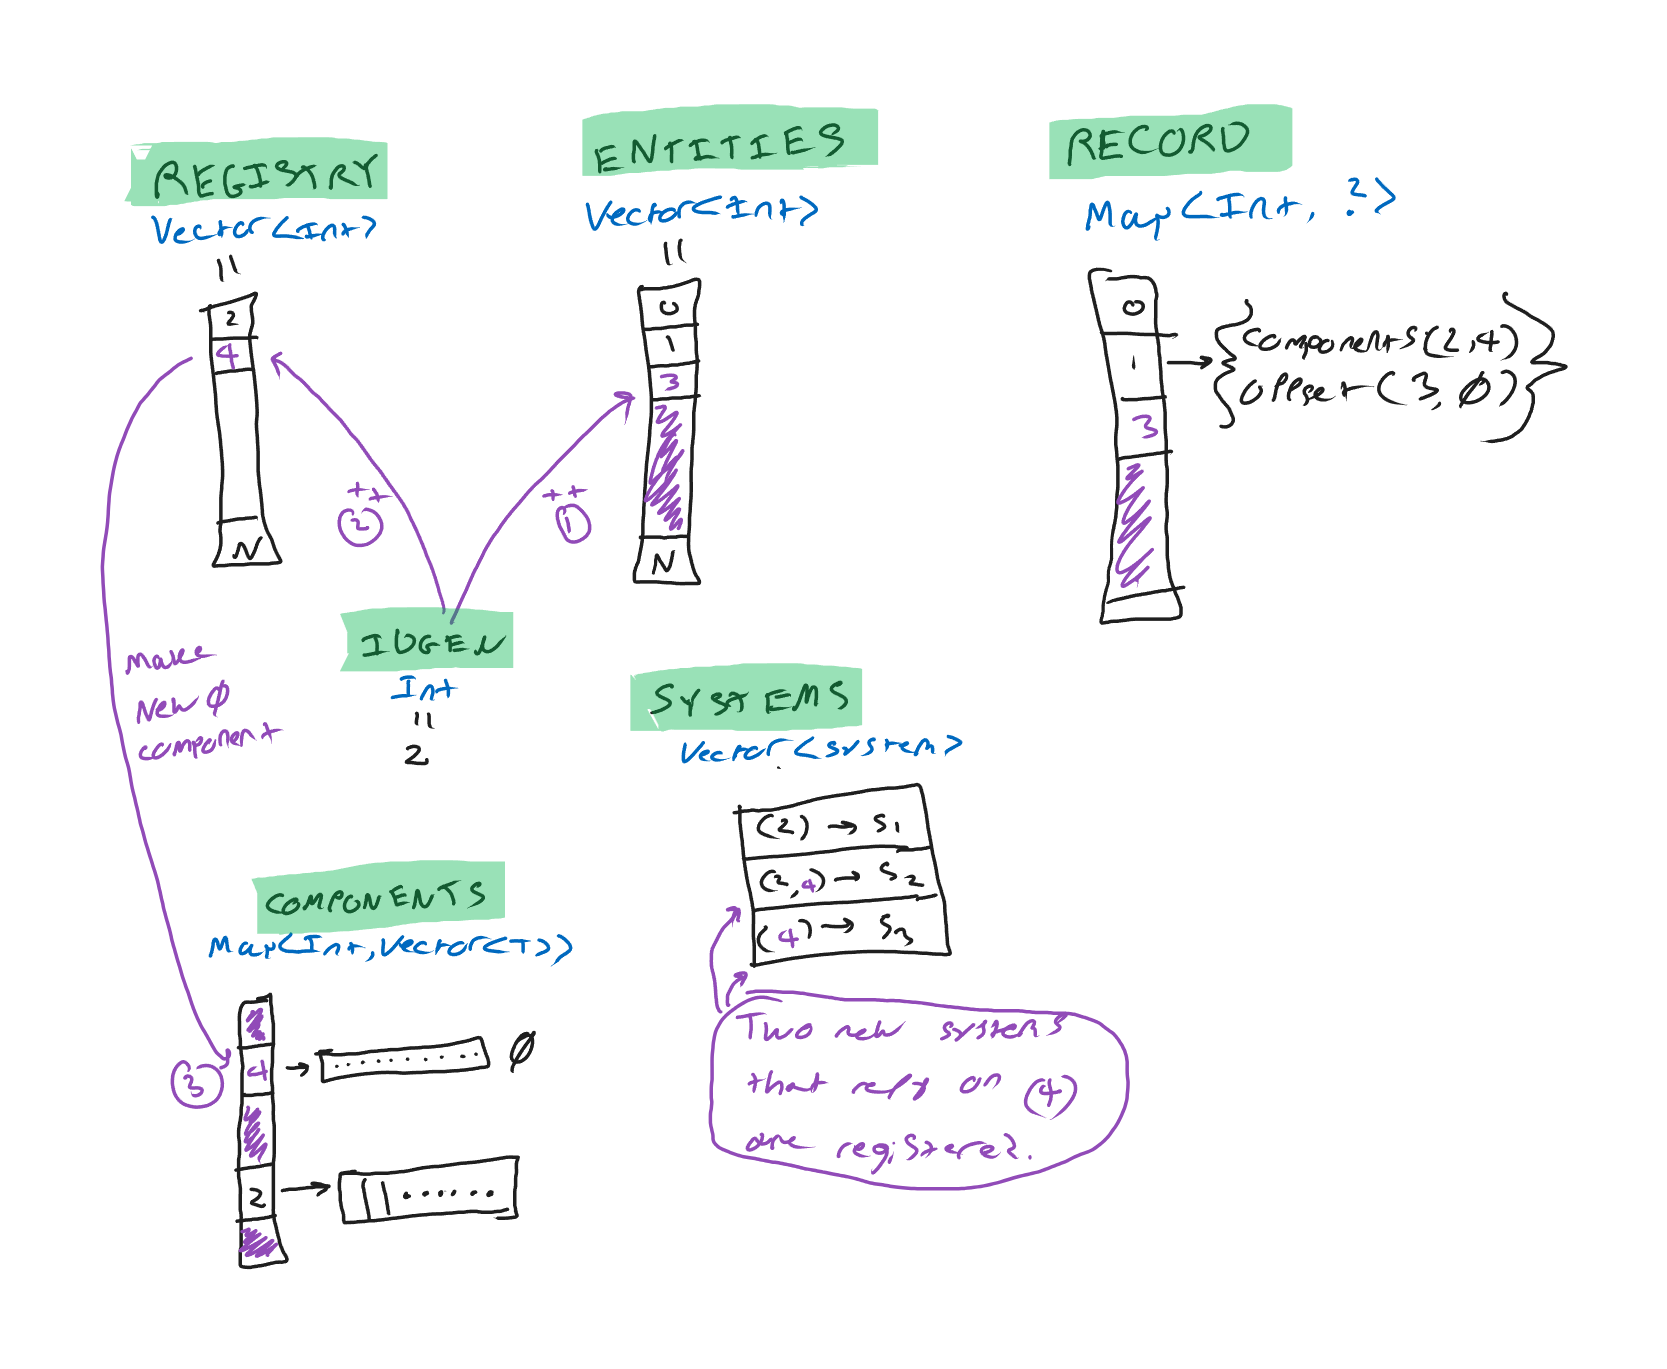 REGISTRY
Vector<Int>
=
2
4
N
ENTITIES
Vector<Int>
=
0
1
3
N
RECORD
Map<Int, ?>
0
1
3
{components(2,4)
offset(3, Ø)}
++
②
++
①
IDGEN
Int
=
2
make
New Ø
component
SYSTEMS
Vector<system>
(2) → S1
(2,4) → S2
(4) → S3
Two new systems
that rely on (4)
are registered.
COMPONENTS
Map<Int,Vector<T>>
③
4 → ......... Ø
2 → ......